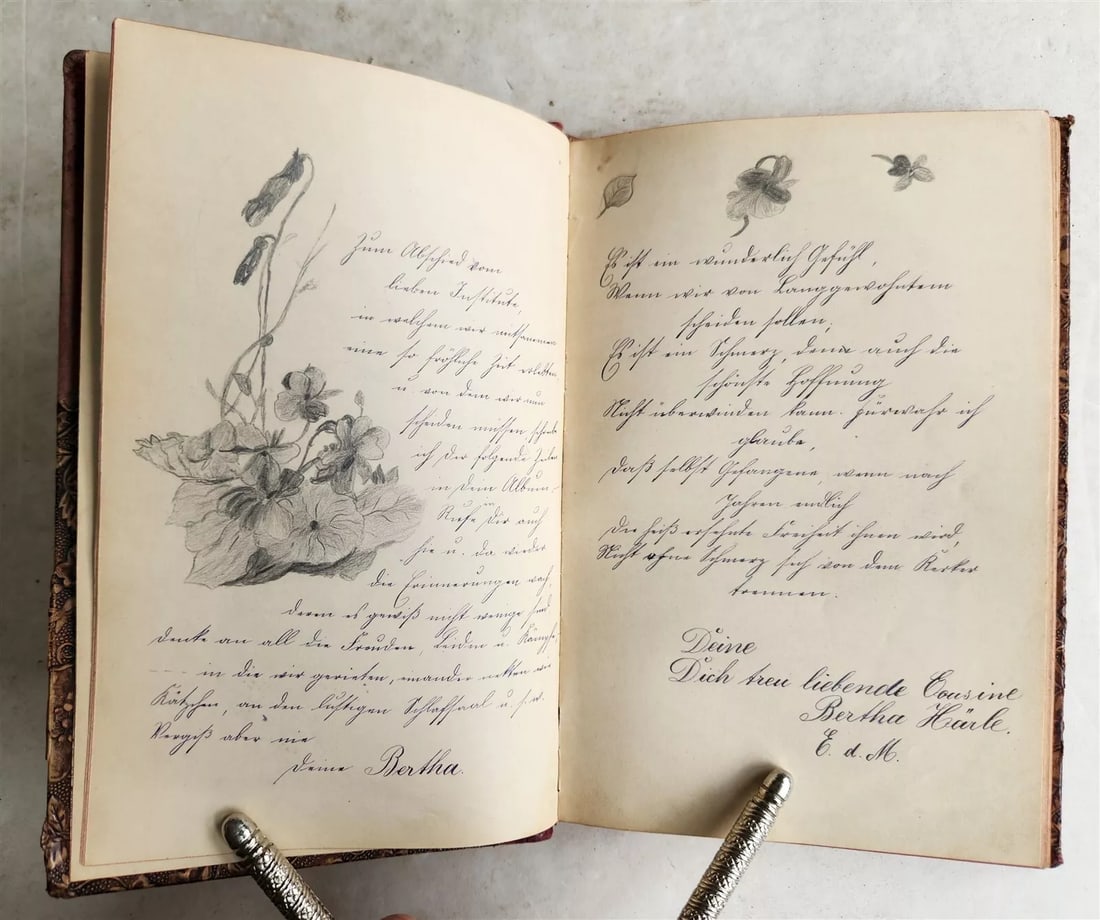 Zum Abschied vom
lieben Institute,
in welchem wir mitsammen
eine so fröhliche Zeit erlebten
u. von dem wir nun
scheiden müssen, schreibe
ich Dir folgende Zeilen
in Dein Album.
Rufe Dir auch
hie u. da wieder
die Erinnerungen wach,
deren es gewiß nicht wenige sind
denke an all die Freuden, Leiden u. Kämpfe,
in die wir gerieten, einander neckten wie
Kätzchen, an den lustigen Schlafsaal u. s. w.
Vergiß aber nie
Deine Bertha.
Es ist ein wunderlich Gefühl,
Wenn wir von Langgewohntem
scheiden sollen;
Es ist ein Schmerz, denn auch die
schönste Hoffnung
Nicht überwinden kann. Fürwahr ich
glaube,
Daß selbst Gefangene, wenn nach
Jahren endlich
Die heiß ersehnte Freiheit ihnen wird,
Nicht ohne Schmerz sich von dem Kerker
trennen.
Deine
Dich treu liebende Cousine
Bertha Hürle.
E. d. M.